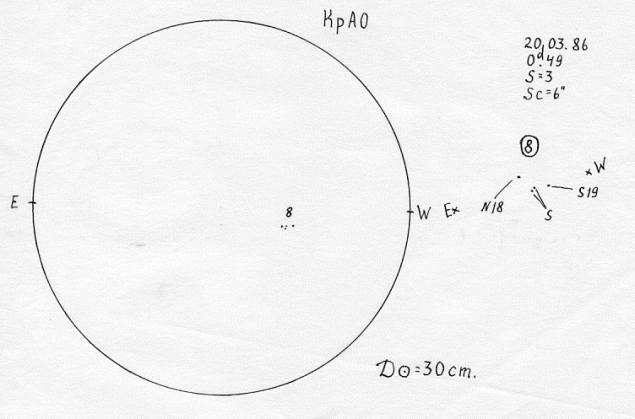 КрАО
20,03.86
0ᵈ.49
S=3
Sc=6"
8
W
E
8
W
E
N18
S
S19
D⊙=30cm.